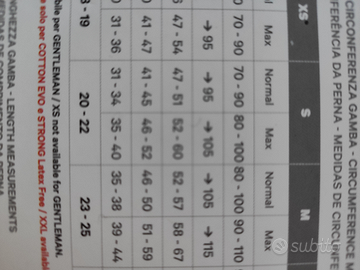 CIRCONFERENZA GAMBA - CIRCUMFERENCE M
FERÊNCIA DA PERNA - MEDIDAS DE CIRCUNFE
XS* S M
Max Normal Max Normal Max
70 - 90 70 - 90 80 - 100 80 - 100 90 - 110
→ 95 → 95 → 105 → 105 → 115
47 - 54 47 - 51 52 - 60 52 - 57 58 - 67
41 - 47 41 - 45 46 - 52 46 - 50 51 - 59
31 - 36 31 - 34 35 - 40 35 - 38 39 - 44
8 - 19 20 - 22 23 - 25
bile per GENTLEMAN / XS not available for GENTLEMAN.
e solo per COTTON EVO e STRONG Latex Free / XXL availabl
NGHEZZA GAMBA - LENGTH MEASUREMENTS
subito